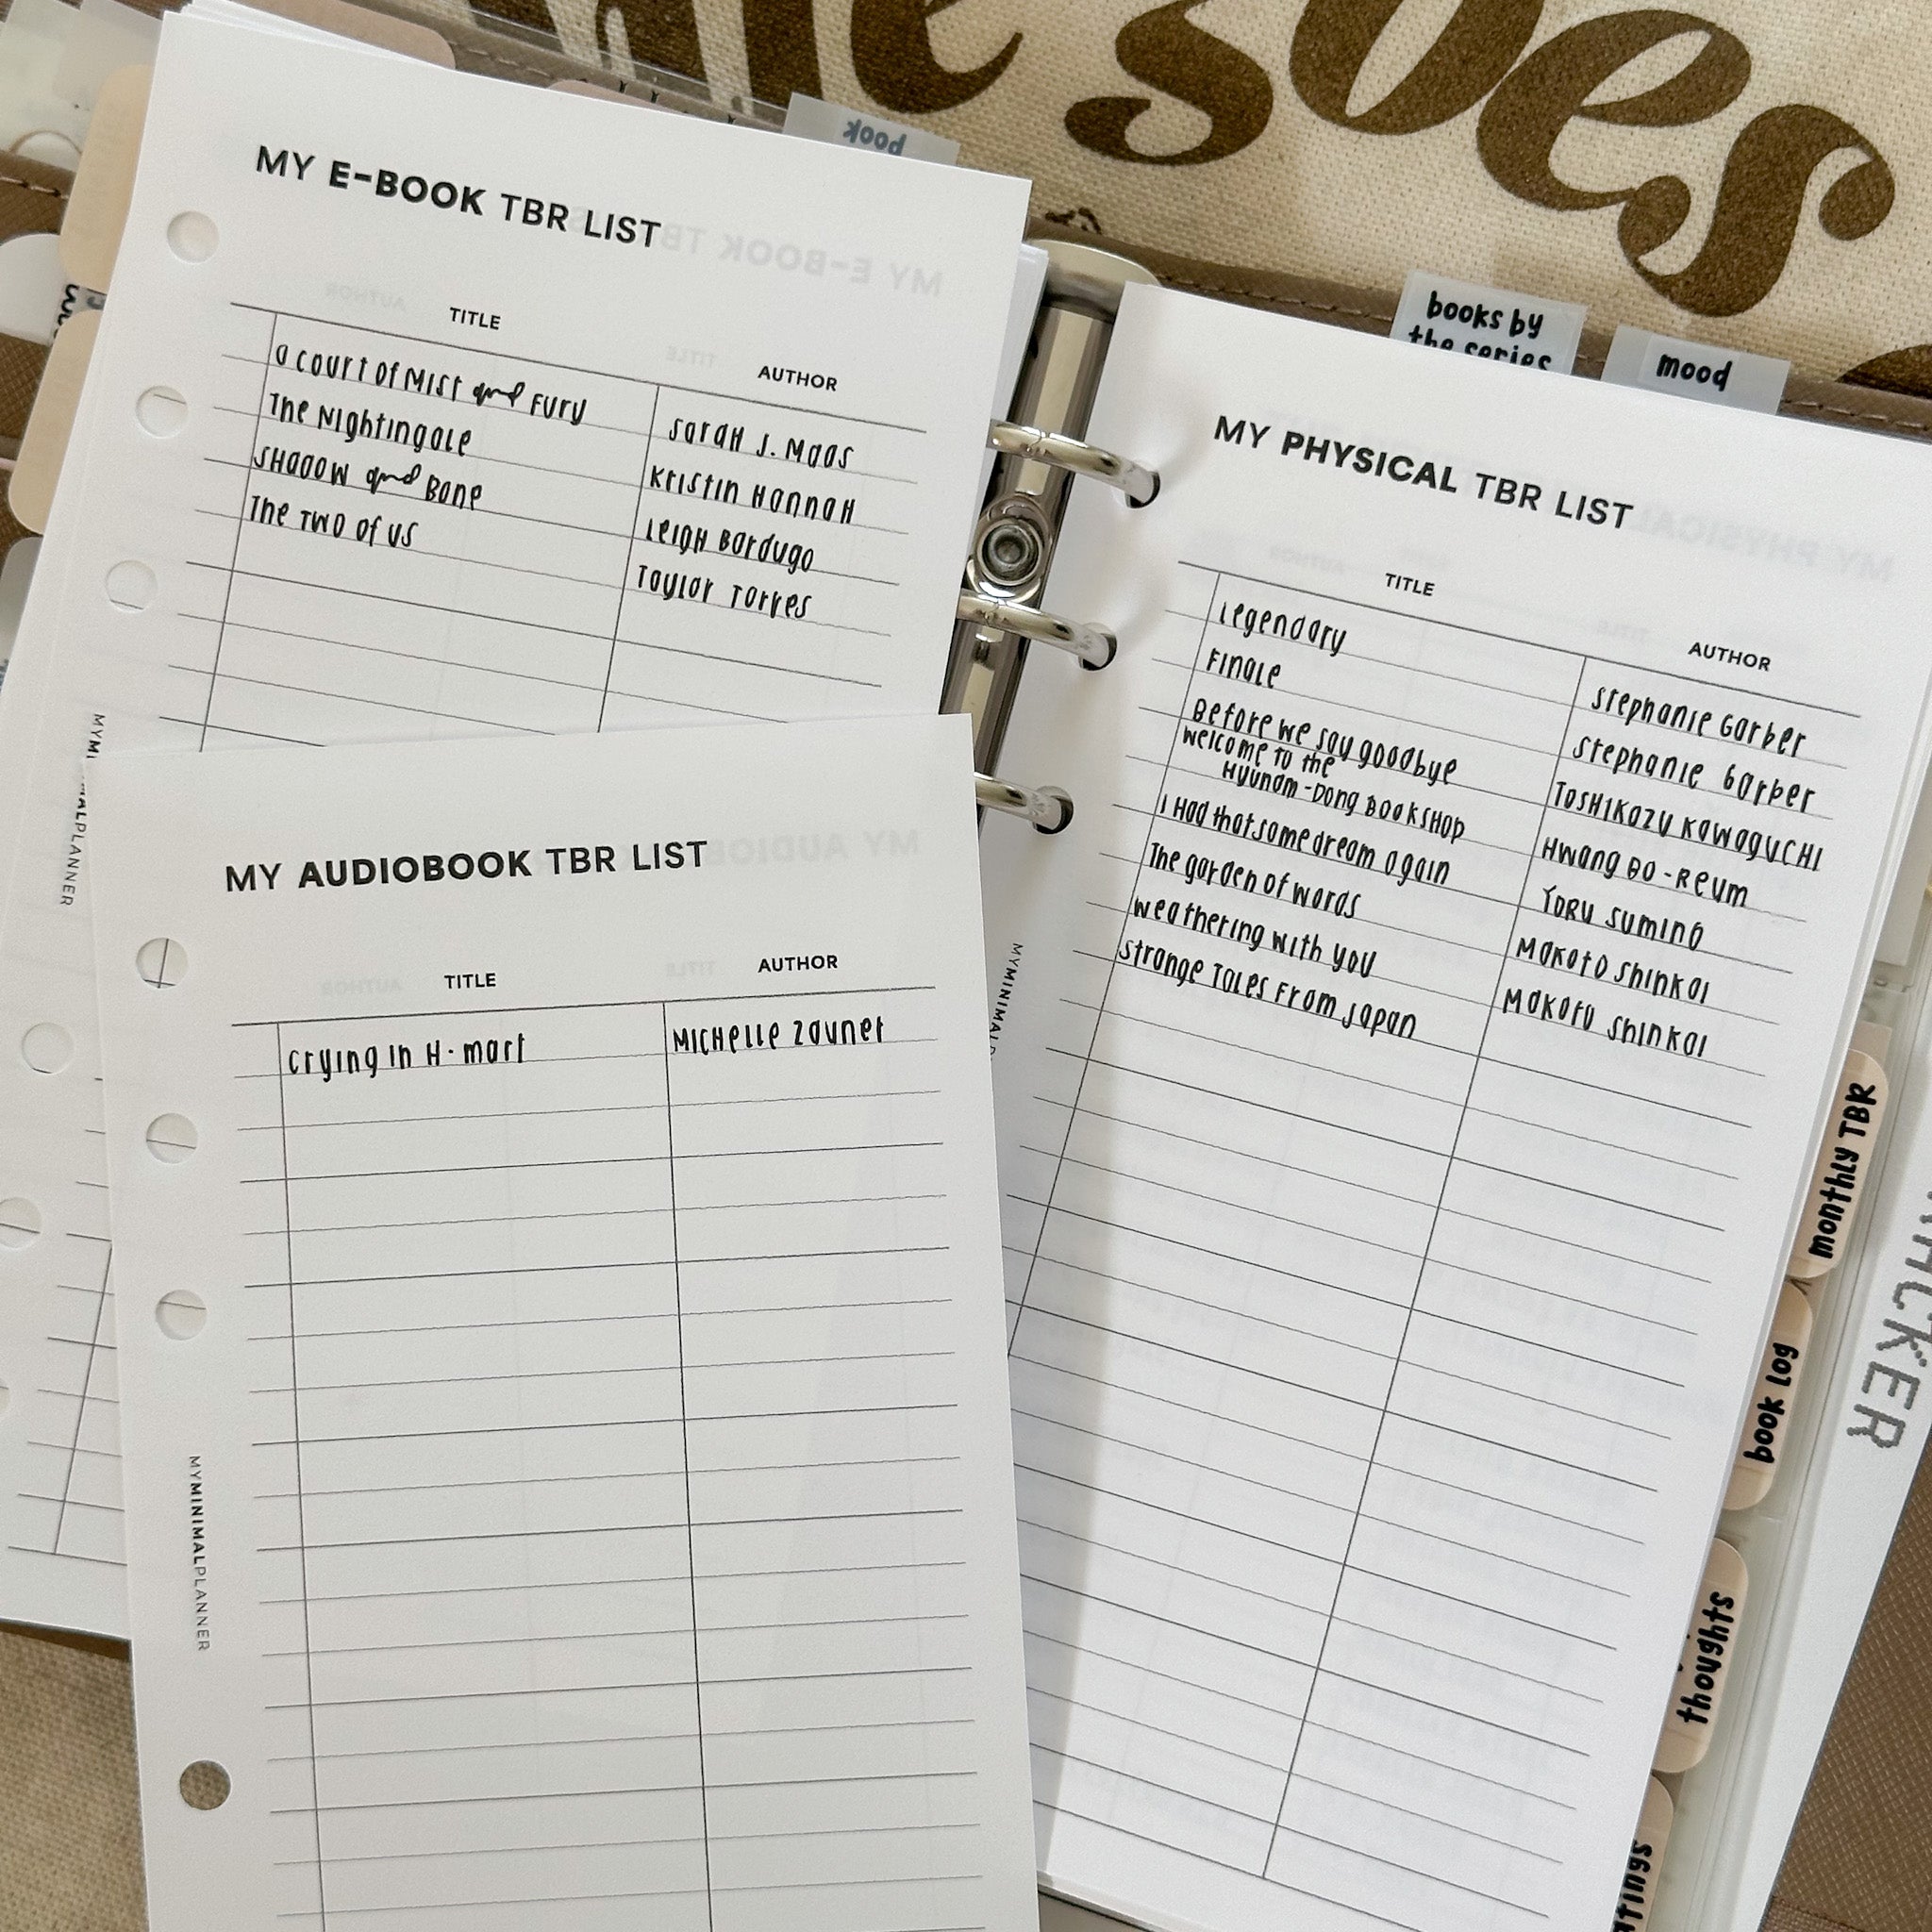 he soes
book
MY E-BOOK TBR LIST
TITLE AUTHOR
a court of Mist and Fury Sarah J. Maas
The Nightingale Kristin Hannah
Shadow and Bone Leigh Bardugo
The Two of Us Taylor Torres
MYMINIMALPLANNER
MY AUDIOBOOK TBR LIST
TITLE AUTHOR
crying in H-mart Michelle Zauner
MYMINIMALPLANNER
books by
the series
mood
MY PHYSICAL TBR LIST
TITLE AUTHOR
Legendary Stephanie Garber
Finale Stephanie Garber
Before we say goodbye Toshikazu Kawaguchi
welcome to the
Hyunam-Dong Bookshop Hwang Bo-Reum
I Had that same dream again Yoru Sumino
The garden of words Makoto Shinkai
weathering with you Makoto Shinkai
strange Tales From Japan
MYMINIMAL
monthly TBR
book log
thoughts